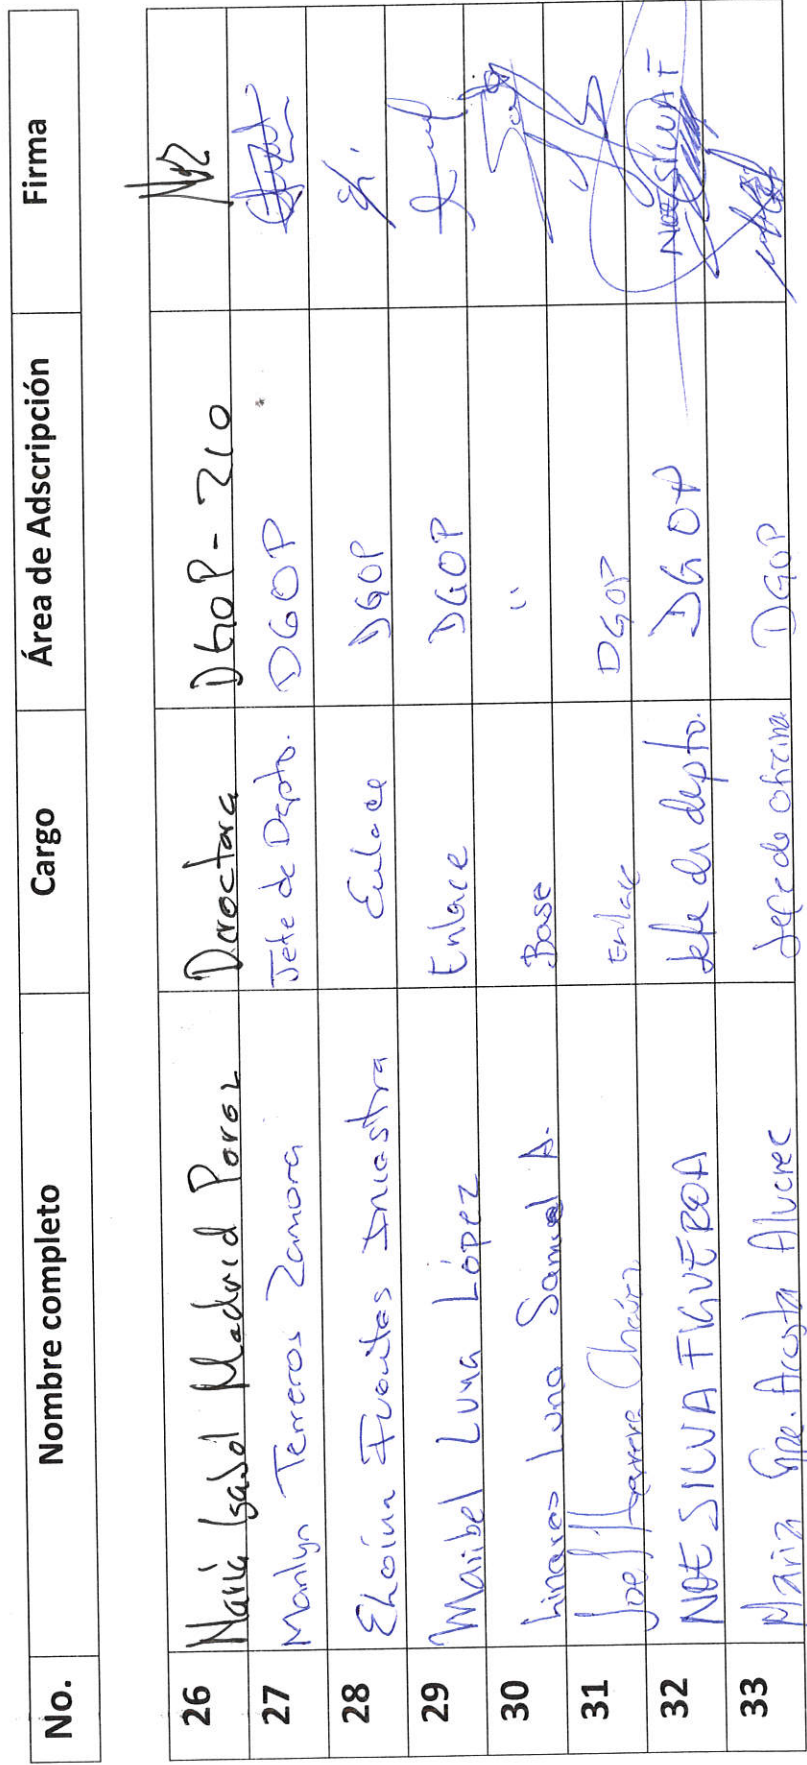 No. Nombre completo Cargo Área de Adscripción Firma
26 María Isabel Madrid Perez Directora DGOP - 210
27 Marilyn Terreros Zamora Jefe de Depto. DGOP
28 Fuentes Iniestra Enlace DGOP
29 Maribel Luna López Enlace DGOP
30 Linares Luna Samuel A. Base "
31 Joel Herrera Cháirez Enlace DGOP
32 NOE SILVA FIGUEROA Jefe de depto. DGOP NOE SILVA F
33 Maria Gpe. Acosta Jefe de oficina DGOP